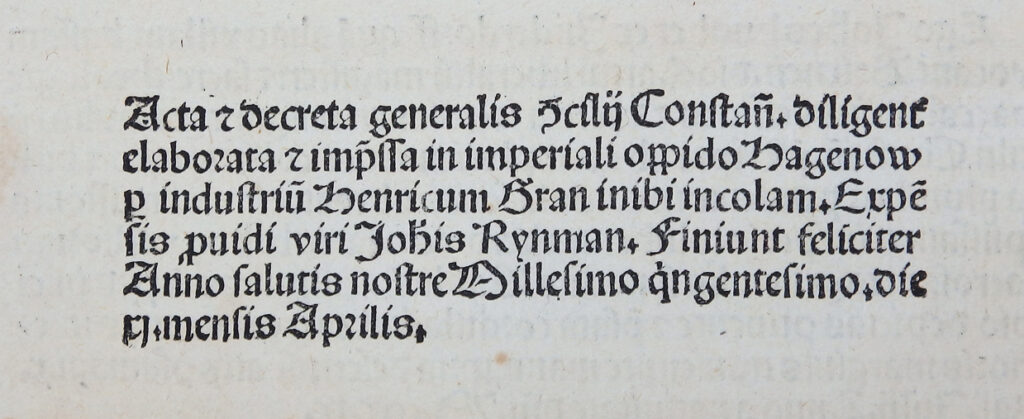 Acta ⁊ decreta generalis ꝯcilij Constan̄. diligent̄
elaborata ⁊ imp̄ssa in imperiali oꝑpido Hagenow
ꝑ industriū Henricum Gran inibi incolam. Expē
sis ꝓuidi viri Joh̄is Rynman. Finiunt feliciter
Anno salutis nostre Millesimo q̇ngentesimo. die
xj. mensis Aprilis.